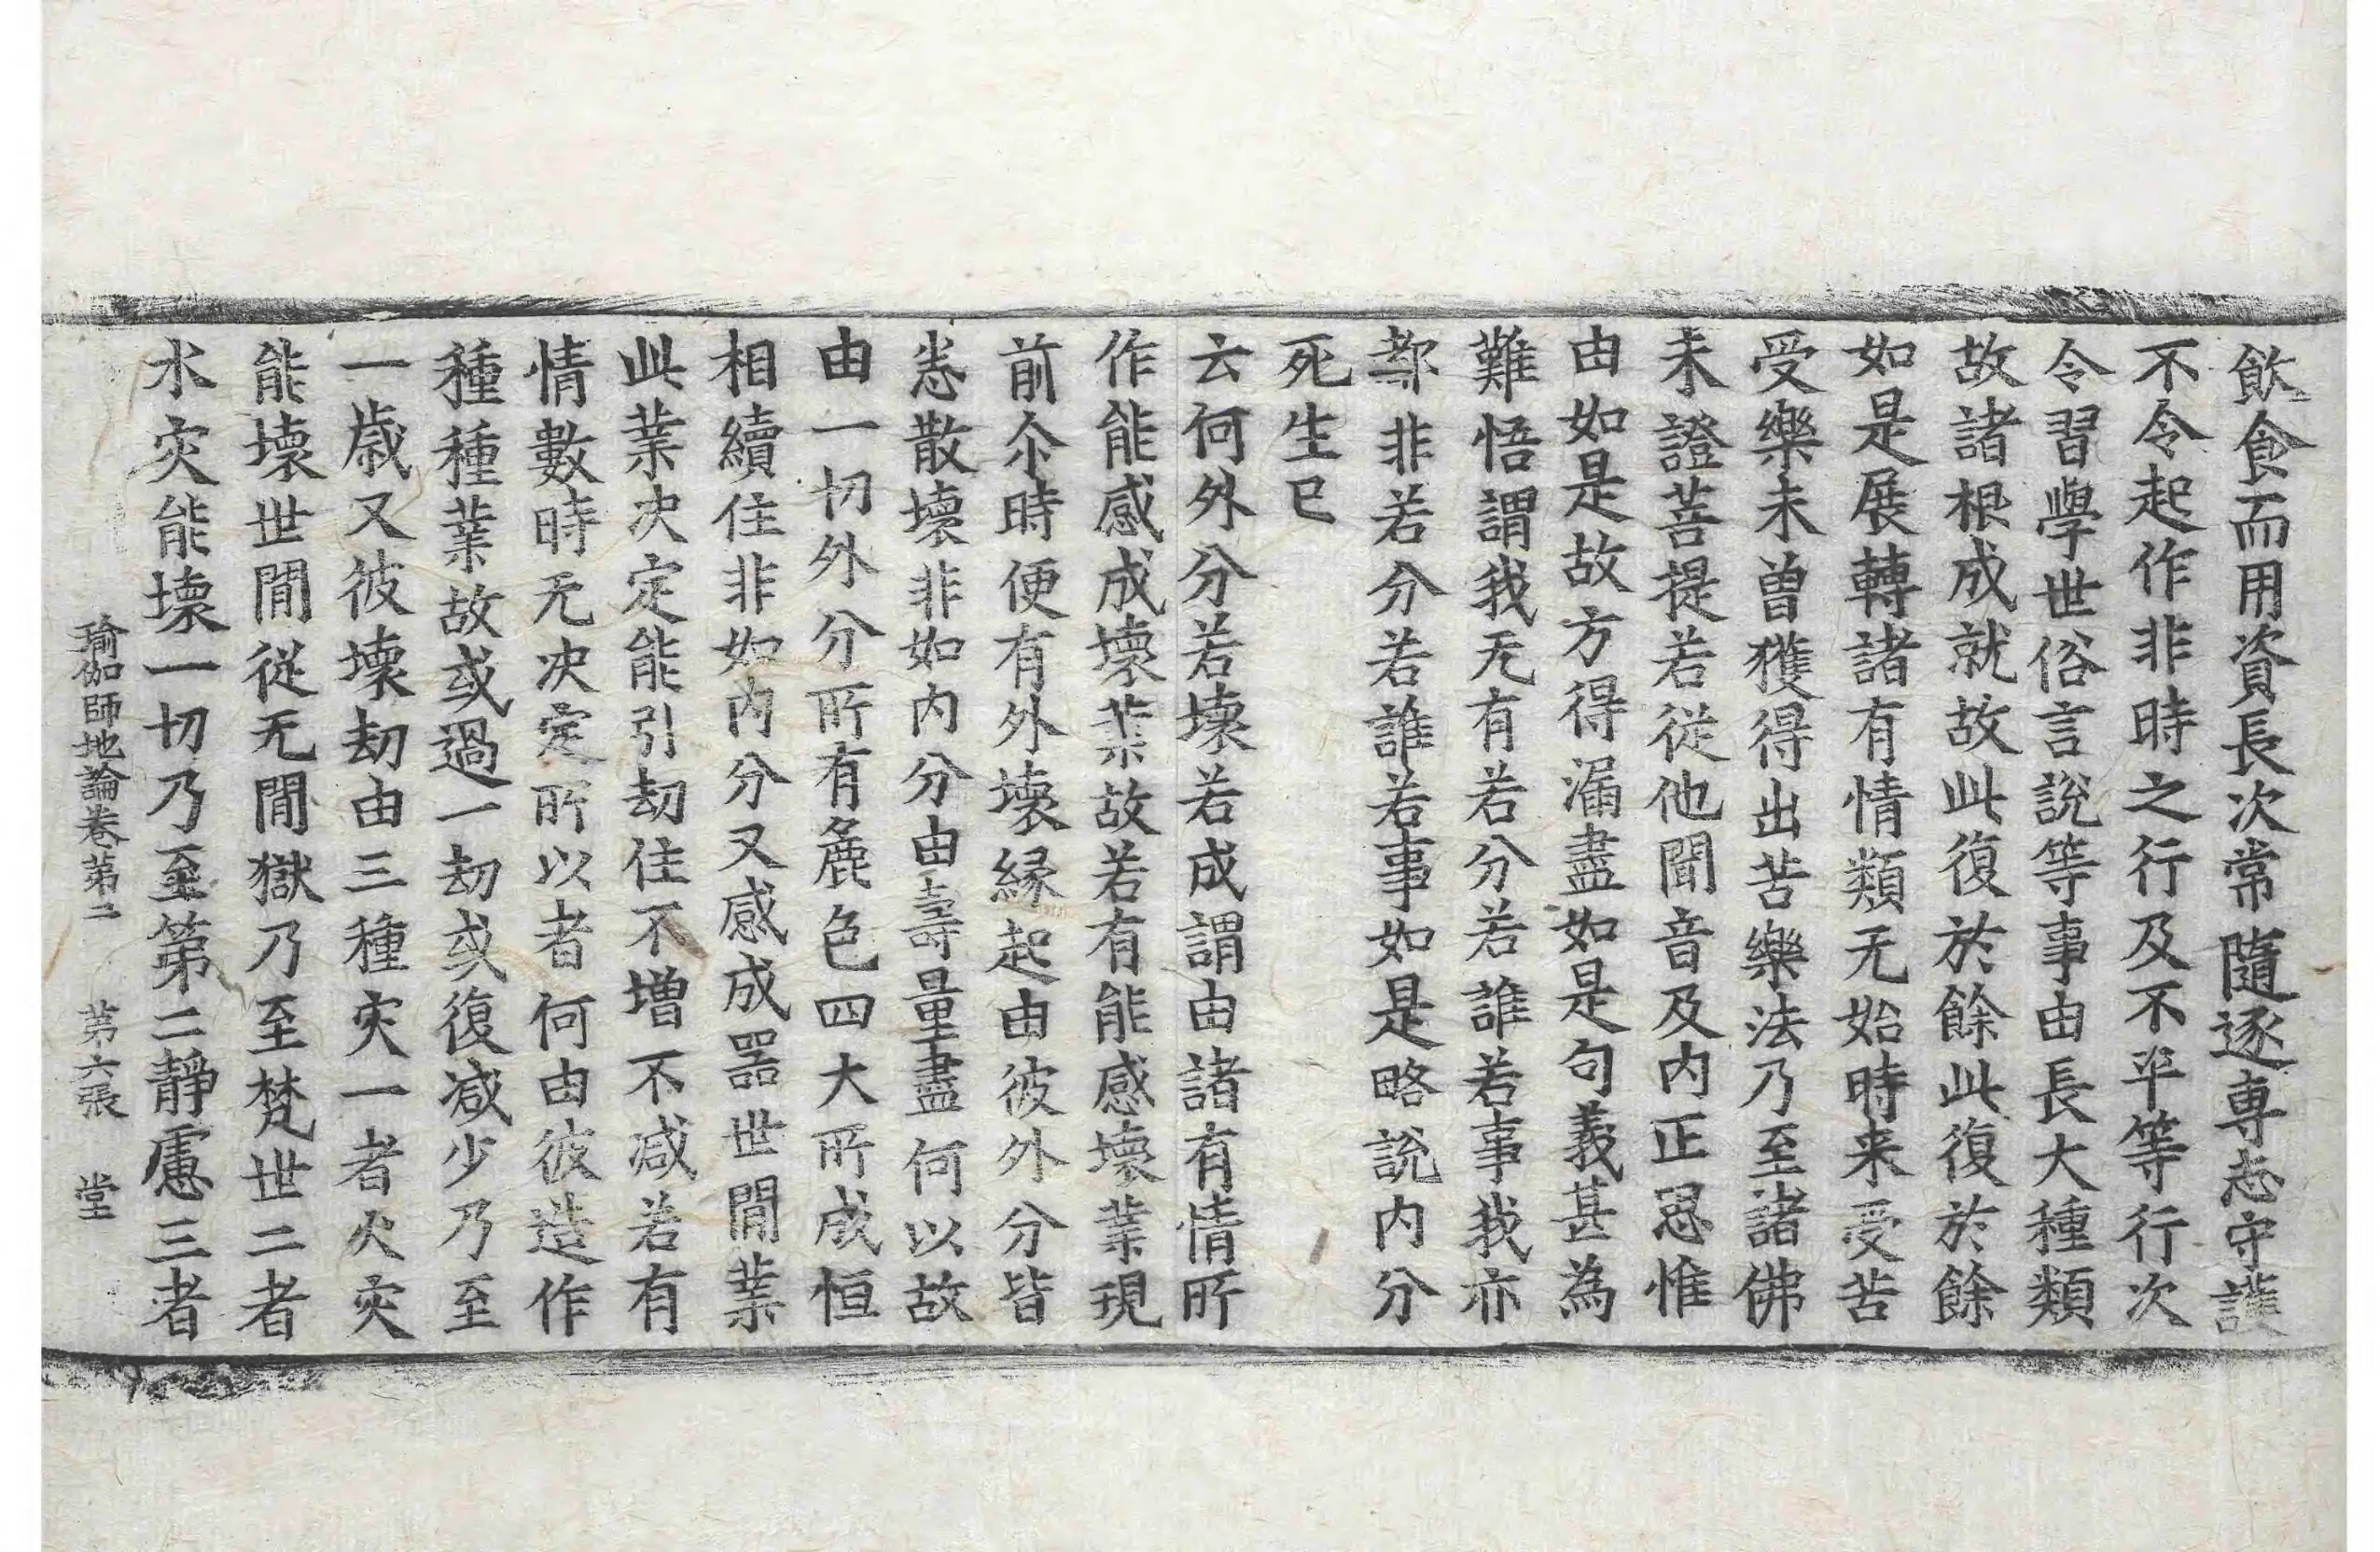 飲食而用資長次常隨逐專志守護
不令起作非時之行及不平等行次
令習學世俗言說等事由長大種類
故諸根成就故此復於餘此復於餘
如是展轉諸有情類无始時来受苦
受樂未曽獲得出苦樂法乃至諸佛
未證菩提若從他聞音及内正思惟
由如是故方得漏盡如是句義甚為
難悟謂我无有若分若誰若事我亦
都非若分若誰若事如是略說内分
死生已
云何外分若壞若成謂由諸有情所
作能感成壞業故若有能感壞業現
前尒時便有外壞縁起由彼外分皆
悉散壞非如内分由壽量盡何以故
由一切外分所有麁色四大所成恒
相續住非如内分又感成器世間業
此業决定能引劫住不增不减若有
情數時无决定所以者何由彼造作
種種業故或過一劫或復减少乃至
一歲又彼壞劫由三種灾一者火灾
能壞世間從无間獄乃至梵世二者
水灾能壞一切乃至第二靜慮三者
瑜伽師地論卷第二 第六張 堂